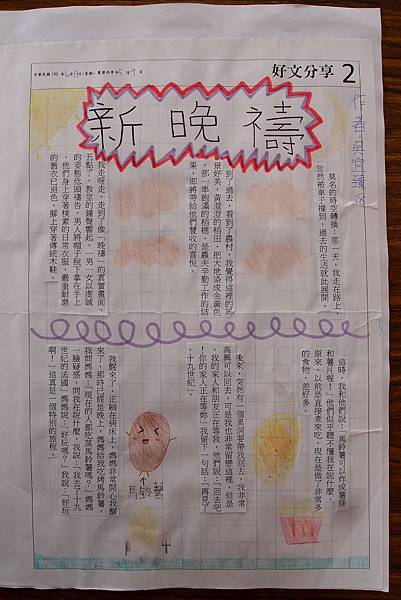 好文分享 2
新晚禱
莫名的時空轉換，那一天，我走在路上，
忽然被車子撞到，過去的生活就此展開。
到了過去，看到了農村，我覺得這裡的風
景好美，黃澄澄的稻田，把大地染成金黃色
，那一串飽滿的稻穗，是農夫辛勤工作的結
果，即將帶給他們豐收的喜悅。
我走呀走，走到了像「晚禱」的真實畫面，
五點了，教堂的鐘聲響起，一男一女以虔誠
的姿態低頭禱告，男人將帽子脫下拿在手上
，他們身上穿著樸素的日常衣服，嚴重耐磨
的舊衣已退色，腳上穿著傳統木鞋。
這時，我和他們說：「馬鈴薯可以炸成薯條
和薯片喔！」他們似乎聽不懂我在說什麼，
原來，以前是直接煮來吃，現在是做了非常多
的食物，差好多。
後來，突然有一個黑洞要帶我回去，我非常
高興可以回去，可是我也非常留戀這裡，但是
，我的家人和朋友正在等我，他們說：「回去吧
！你的家人正在等妳」我留下一句話：「再見了
，十九世紀。」
我醒來了，正躺在病床上，媽媽非常開心我醒
來了，那時已經是晚上，媽媽給我吃烤馬鈴薯，
我問媽媽：「現在的人都吃蒸馬鈴薯嗎？」媽媽
一臉疑惑，問我在說什麼，我說：「我去了十九
世紀的法國」媽媽說：「好玩嗎？」我說：「好玩
啊！」這真是一個特別的旅程。
馬鈴薯